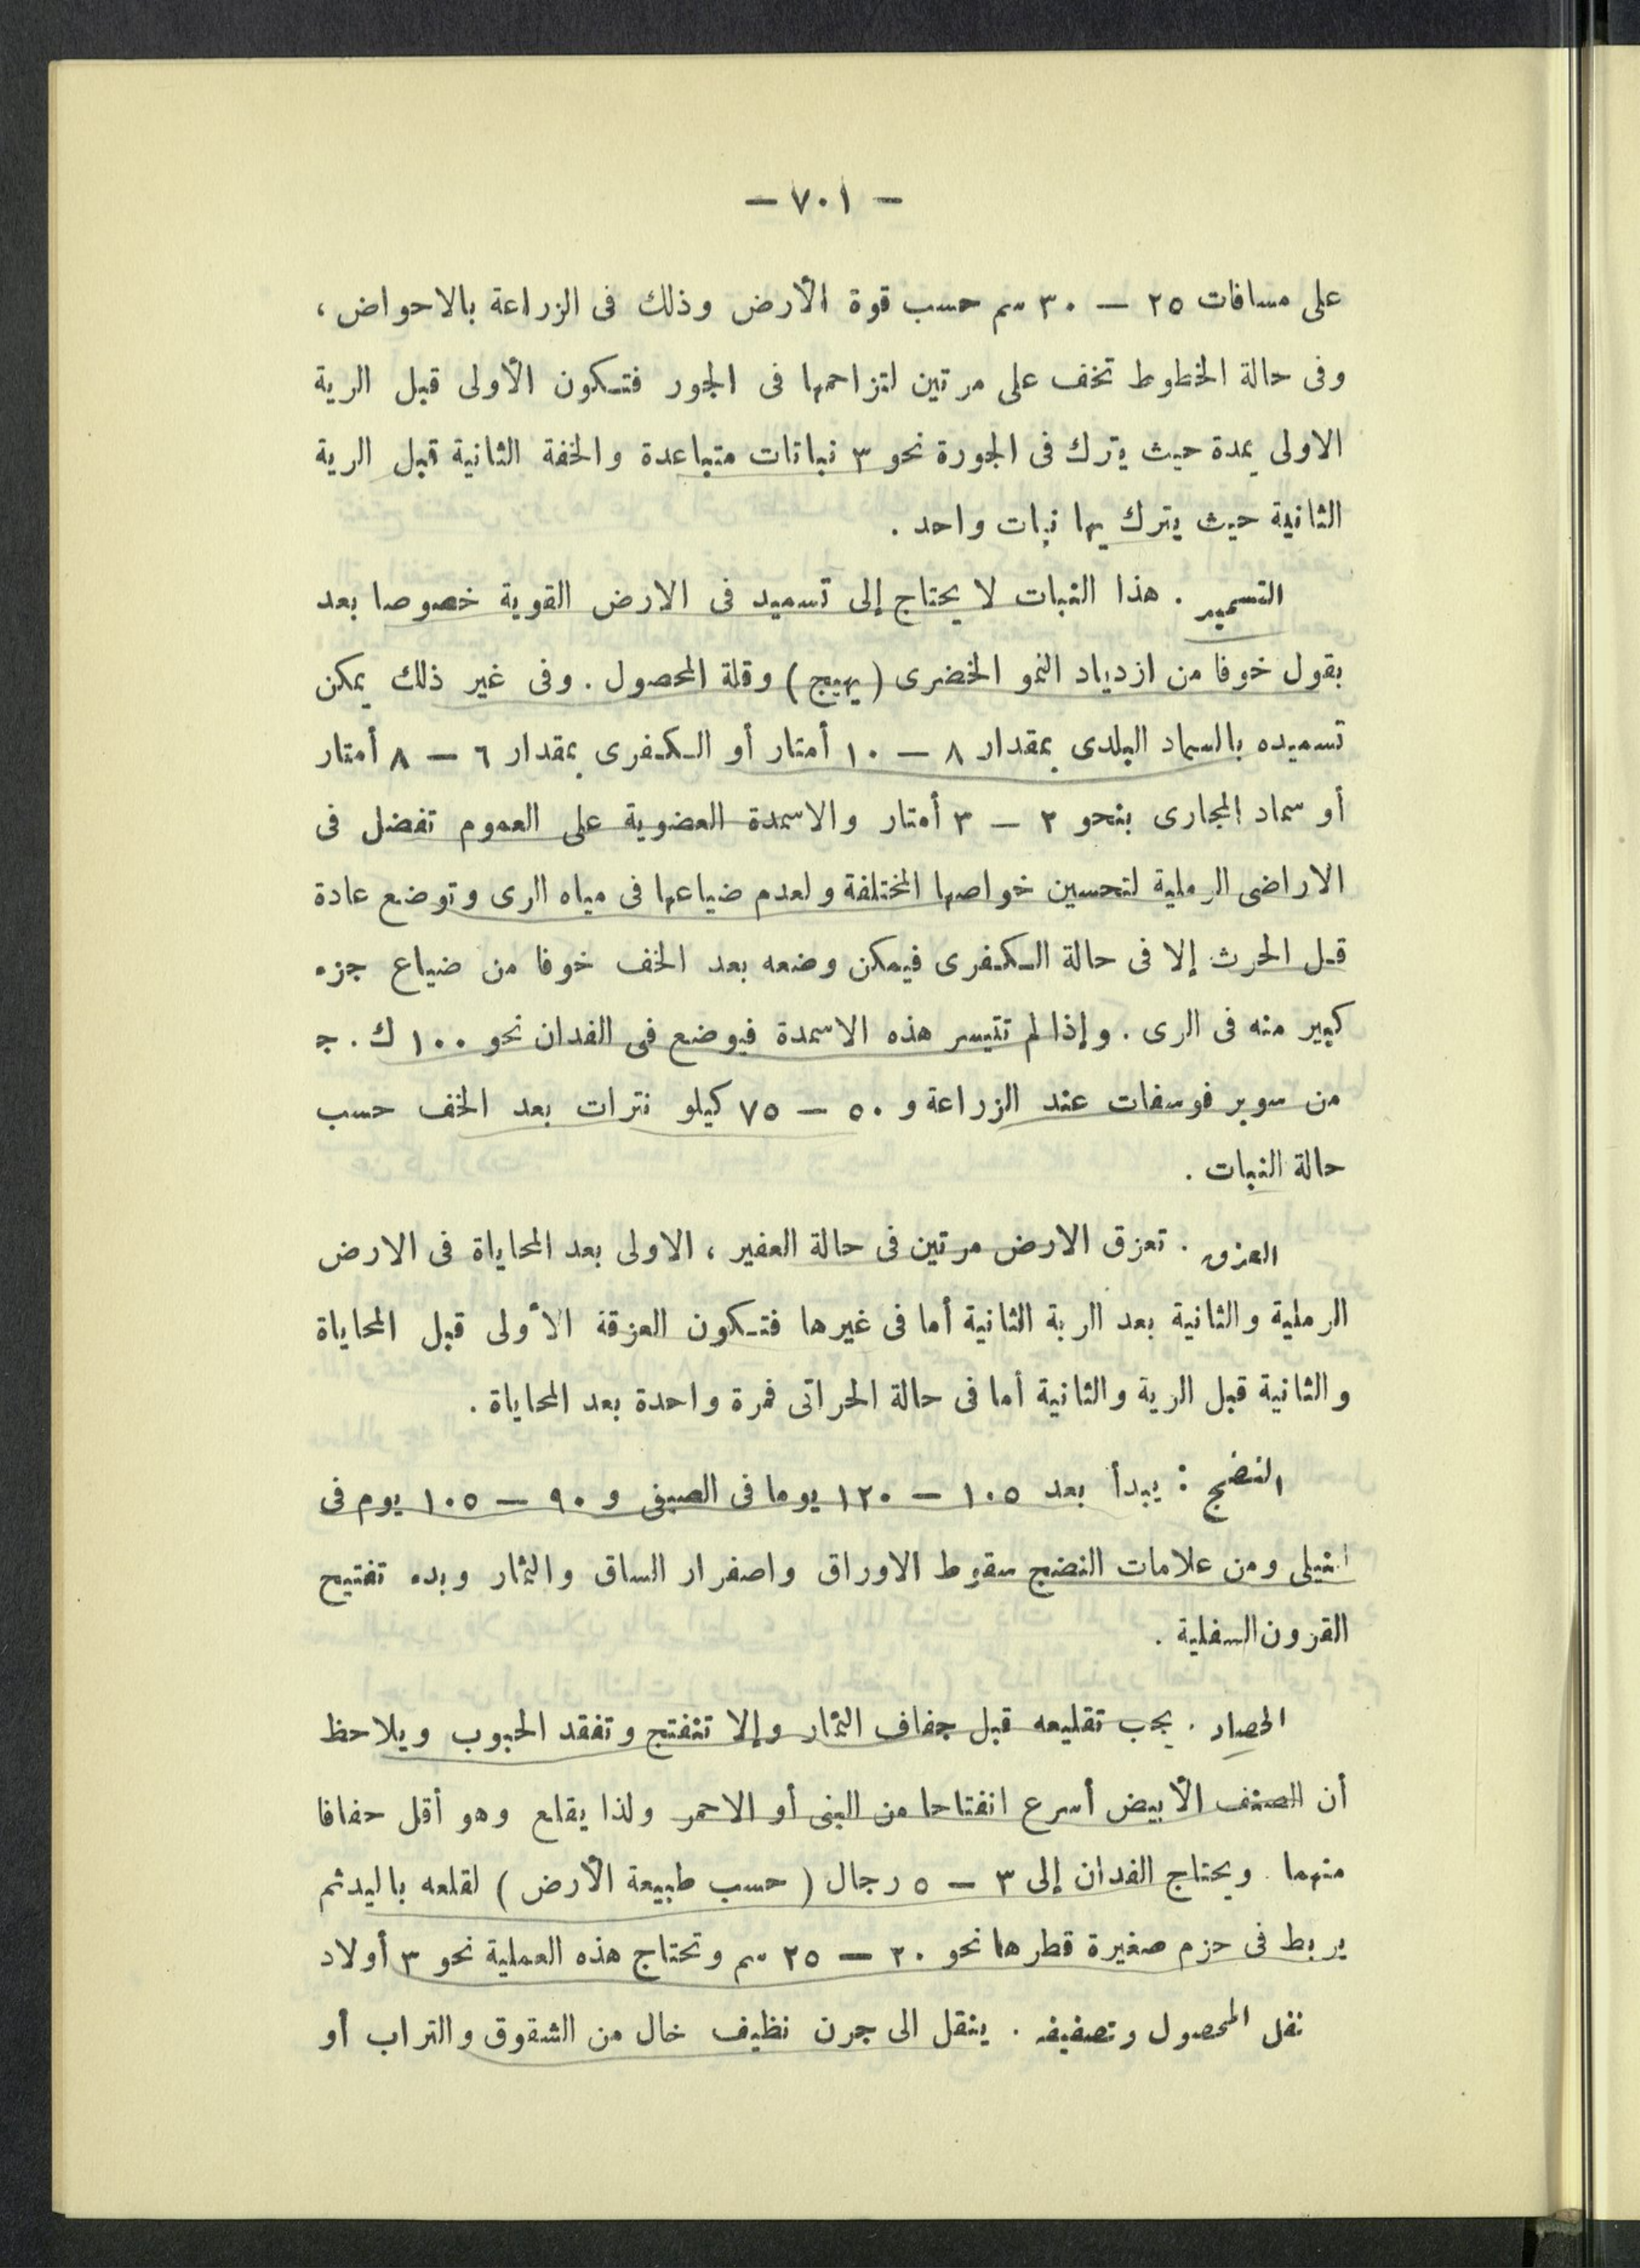 — ٧٠١ —
على مسافات ٢٥ — ٣٠ سم حسب قوة الأرض وذلك فى الزراعة بالاحواض ،
وفى حالة الخطوط تخف على مرتين لتزاحمها فى الجور فتكون الأولى قبل الرية
الاولى بمدة حيث يترك فى الجورة نحو ٣ نباتات متباعدة والخفة الثانية قبل الرية
الثانية حيث يترك بها نبات واحد .
التسميد . هذا النبات لا يحتاج إلى تسميد فى الارض القوية خصوصا بعد
بقول خوفا من ازدياد النمو الخضرى ( يهيج ) وقلة المحصول . وفى غير ذلك يمكن
تسميده بالسماد البلدى بمقدار ٨ — ١٠ أمتار أو الكفرى بمقدار ٦ — ٨ أمتار
أو سماد المجارى بنحو ٢ — ٣ أمتار والاسمدة العضوية على العموم تفضل فى
الاراضى الرملية لتحسين خواصها المختلفة ولعدم ضياعها فى مياه الرى وتوضع عادة
قبل الحرث إلا فى حالة الكفرى فيمكن وضعه بعد الخف خوفا من ضياع جزء
كبير منه فى الرى . وإذا لم تتيسر هذه الاسمدة فيوضع فى الفدان نحو ١٠٠ ك . ج
من سوبر فوسفات عند الزراعة و ٥٠ — ٧٥ كيلو نترات بعد الخف حسب
حالة النبات .
العزق . تعزق الارض مرتين فى حالة العفير ، الاولى بعد المحاياة فى الارض
الرملية والثانية بعد الرية الثانية أما فى غيرها فتكون العزقة الأولى قبل المحاياة
والثانية قبل الرية والثانية أما فى حالة الحراتى فمرة واحدة بعد المحاياة .
النضج : يبدأ بعد ١٠٥ — ١٢٠ يوما فى الصيفى و ٩٠ — ١٠٥ يوم فى
النيلى ومن علامات النضج سقوط الاوراق واصفرار الساق والثمار وبدء تفتيح
القرون السفلية .
الحصاد . يجب تقليعه قبل جفاف الثمار وإلا تتفتح وتفقد الحبوب ويلاحظ
أن الصنف الأبيض أسرع انفتاحا من البنى أو الاحمر ولذا يقلع وهو أقل جفافا
منهما . ويحتاج الفدان إلى ٣ — ٥ رجال ( حسب طبيعة الأرض ) لقلعه باليد ثم
يربط فى حزم صغيرة قطرها نحو ٢٠ — ٢٥ سم وتحتاج هذه العملية نحو ٣ أولاد
نقل المحصول وتصفيفه . ينقل الى جرن نظيف خال من الشقوق والتراب أو